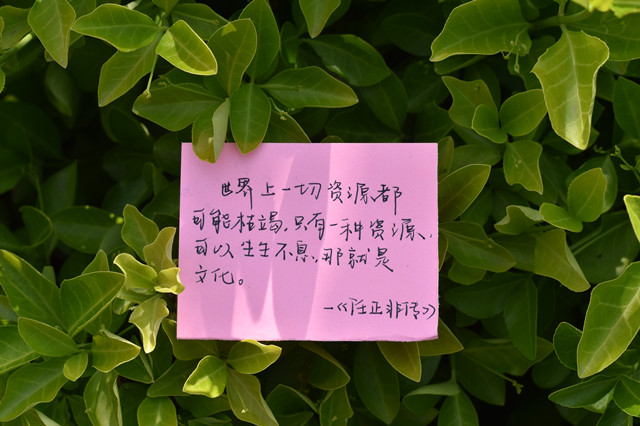 世界上一切资源都
可能枯竭,只有一种资源,
可以生生不息,那就是
文化。
—《任正非传》